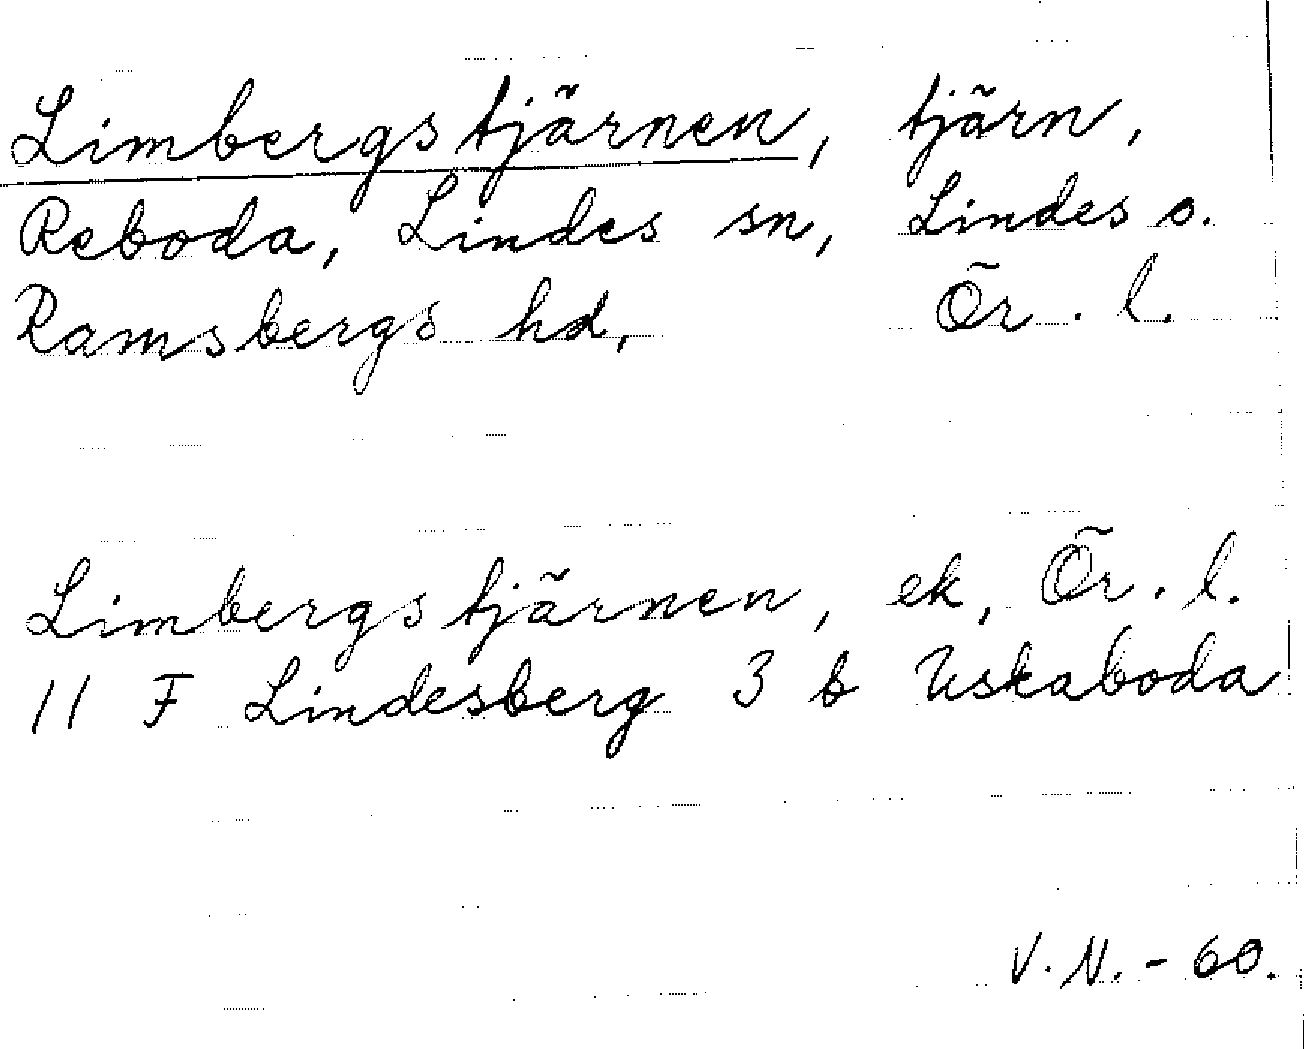 Limbergstjärnen, tjärn.
Reboda, Lindes sn, Lindes o.
Ramsbergs hd, Ör. l.
Limbergstjärnen, ek, Ör. l.
11 F Lindesberg 3 b Uskaboda
V. N. - 60.